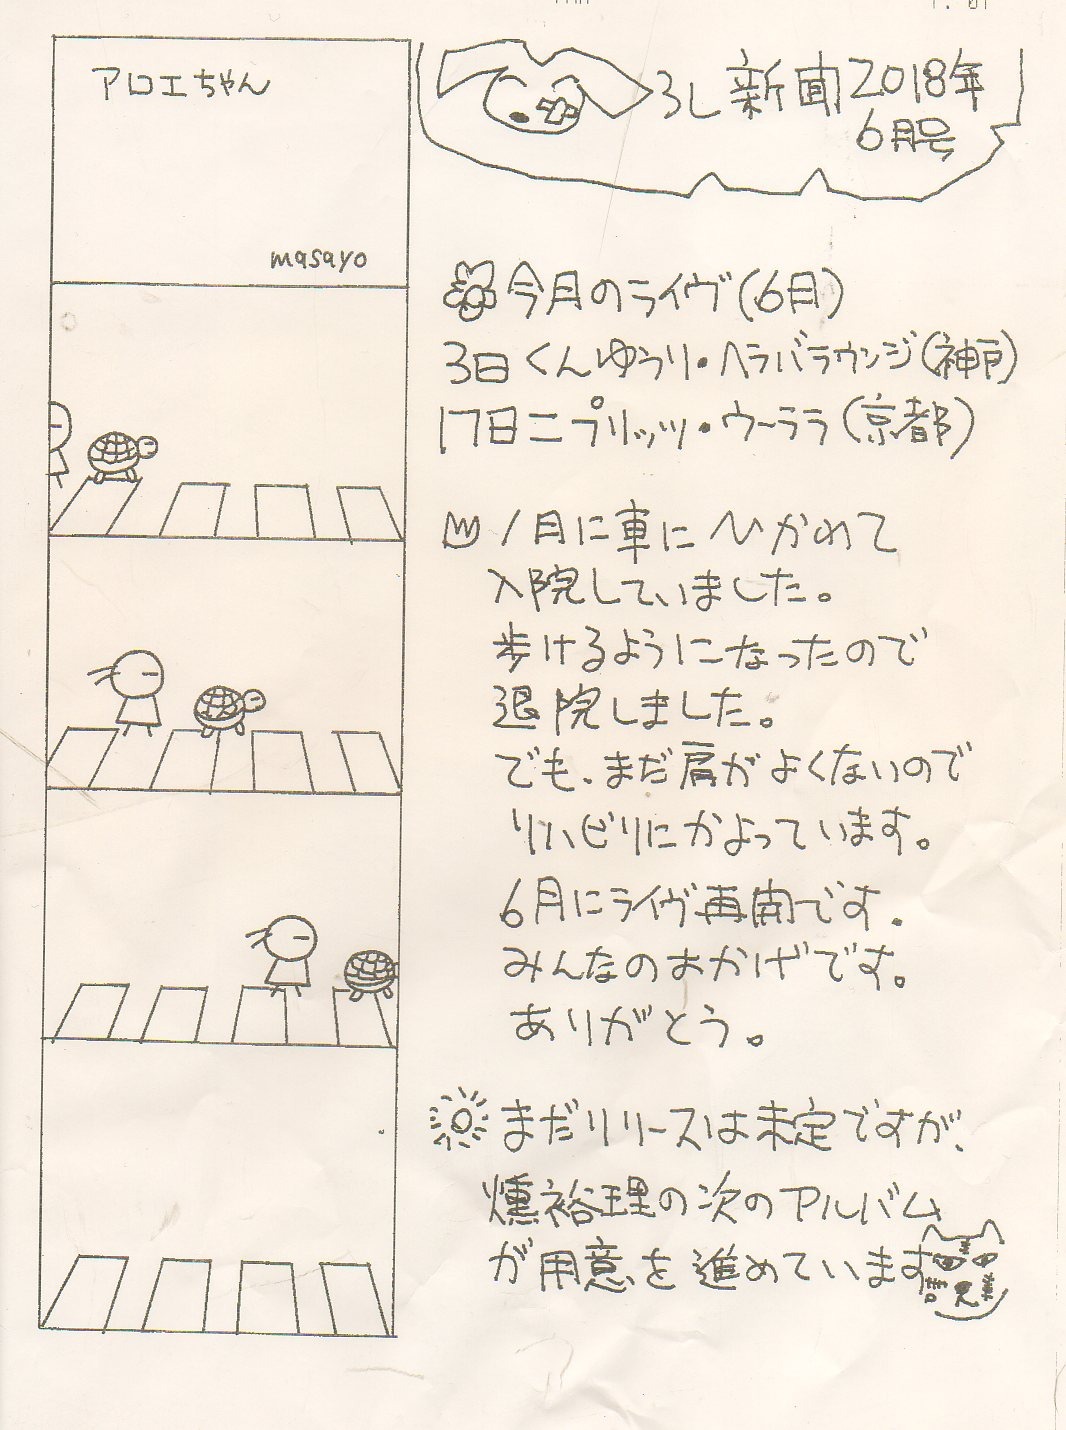 アロエちゃん
masayo
ろし新聞2018年
6月号
今月のライヴ(6月)
3日くんゆうり・ヘラバラウンジ(神戸)
17日ニプリッツ・ウーララ(京都)
1月に車にひかれて
入院していました。
歩けるようになったので
退院しました。
でも、まだ肩がよくないので
リハビリにかよっています。
6月にライヴ再開です。
みんなのおかげです。
ありがとう。
まだリリースは未定ですが、
燻裕理の次のアルバム
が用意を進めています